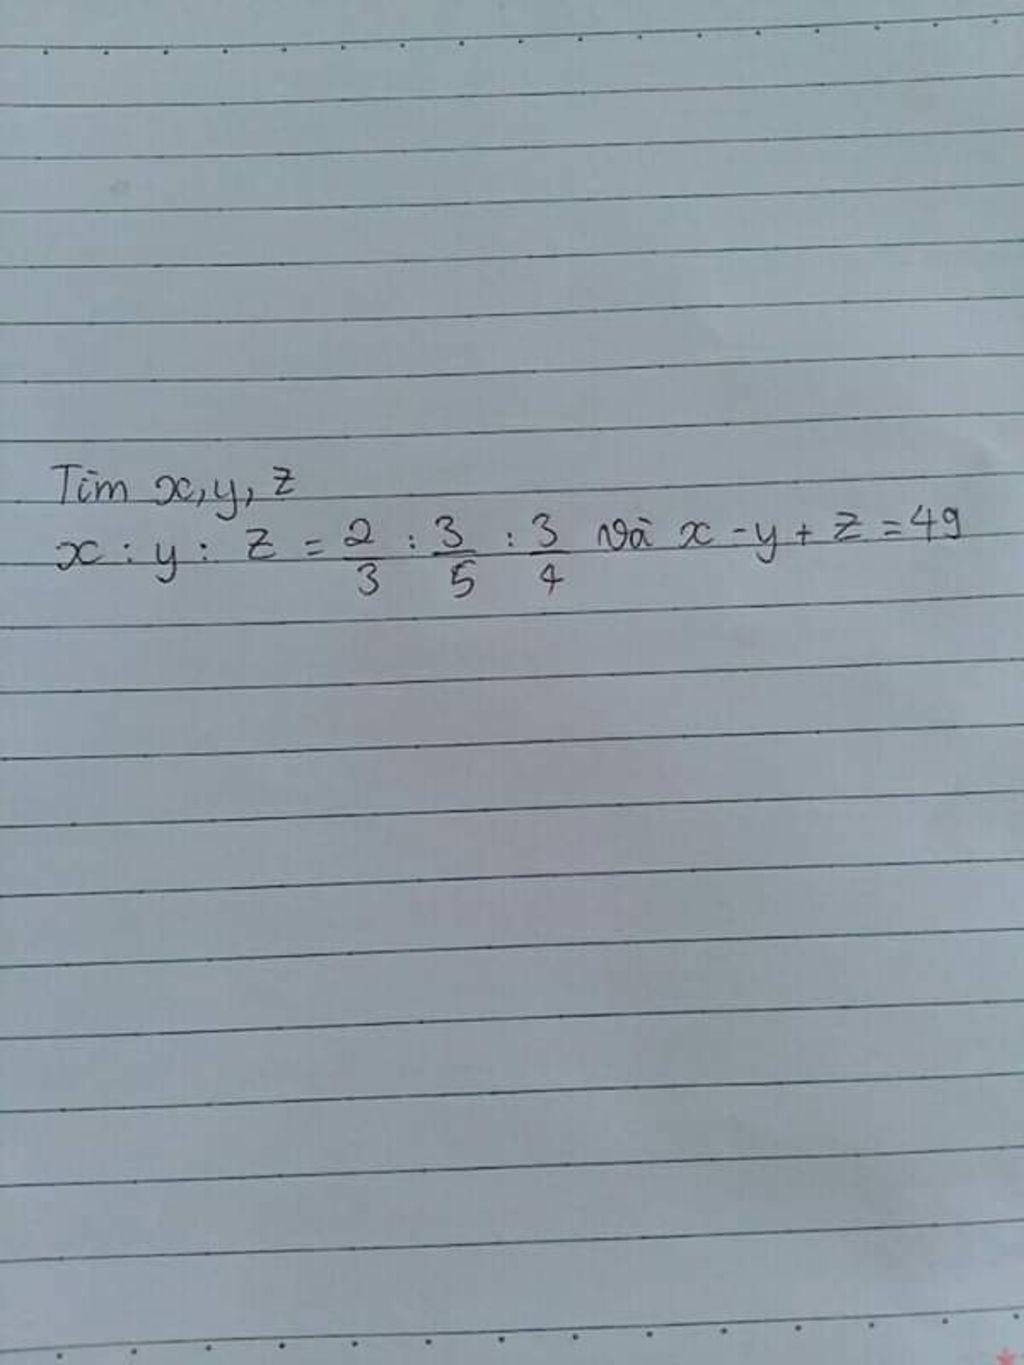 Tìm x, y, z
x : y : z = 2/3 : 3/5 : 3/4 và x - y + z = 49